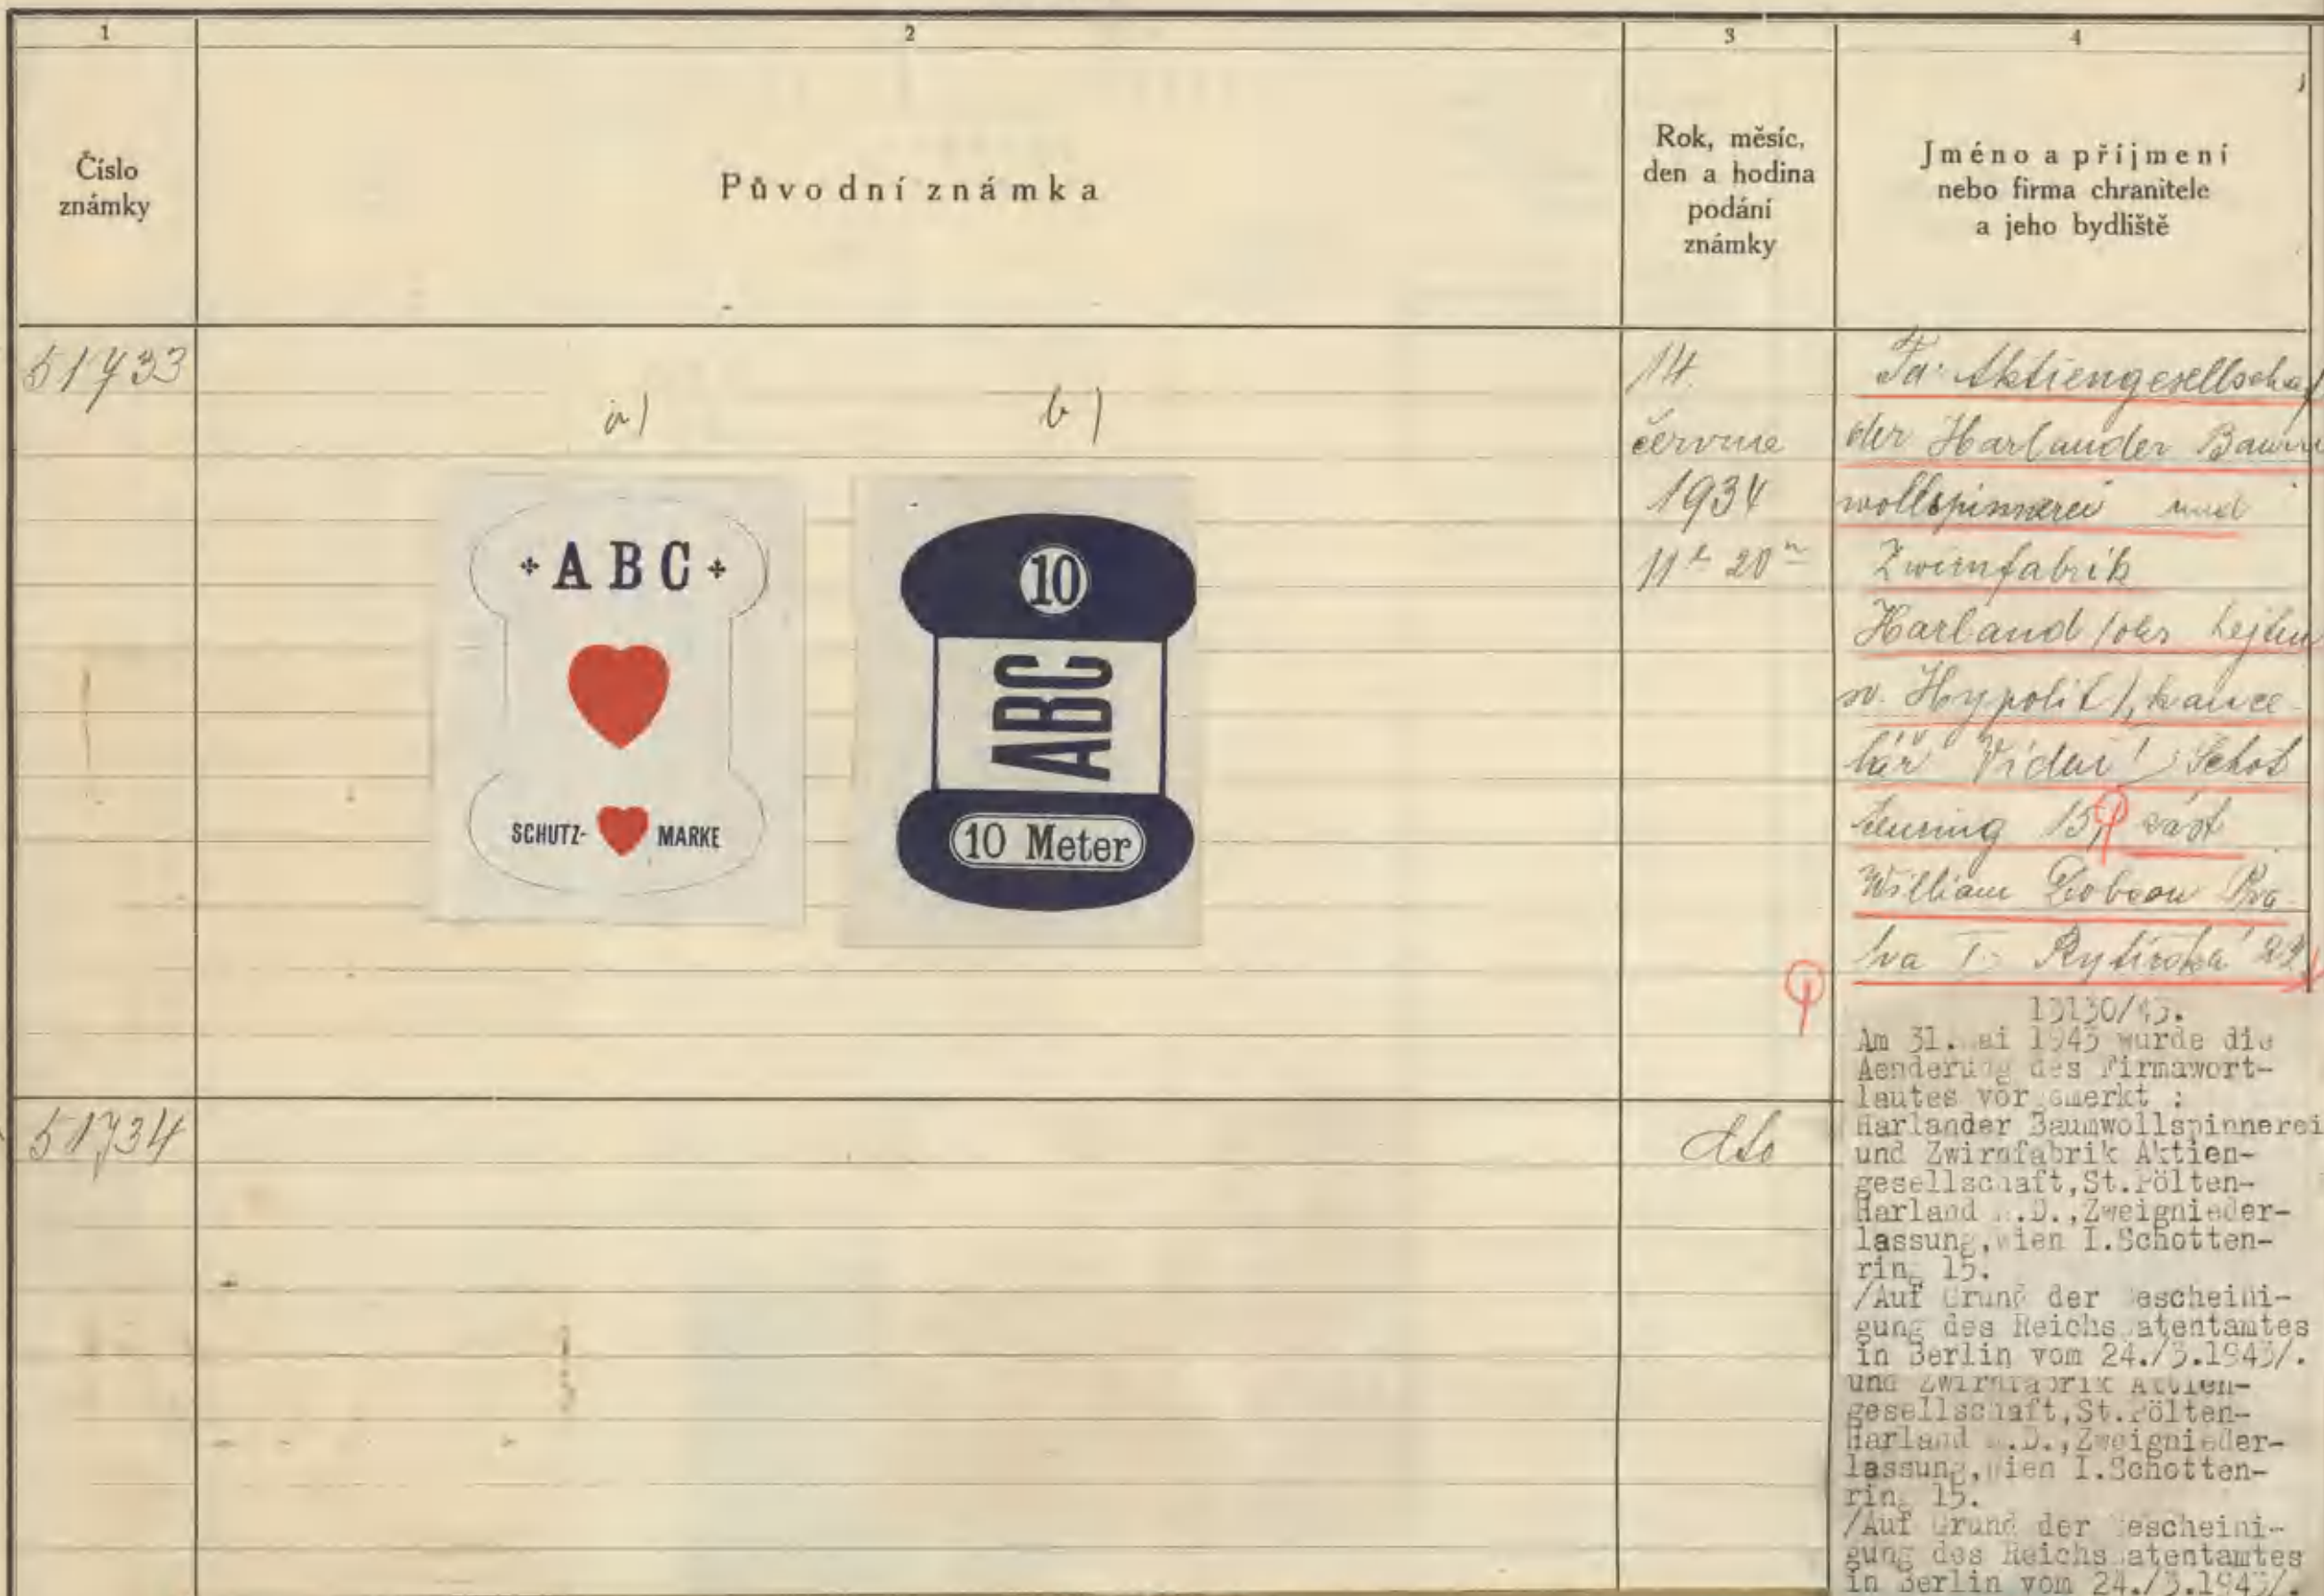 1
2
3
4
Číslo
známky
Původní známka
Rok, měsíc,
den a hodina
podání
známky
Jméno a příjmení
nebo firma chranitele
a jeho bydliště
51733
a)
b)
+ABC+
SCHUTZ- MARKE
10
ABC
10 Meter
14
června
1934
11h 20m
Fa: Aktiengesellschaf
der Harlander Baum
wollspinnerei und
Zwirnfabrik
Harland /okr hejtm
sv. Hypolit/, kance-
lář Vídeň I, Schot
tenring 15, zást
William Dobson Pra
ha I Rytířská
13130/43.
Am 31. ai 1943 wurde die
Aenderung des Firmawort-
lautes vor emerkt :
Harlander Baumwollspinnerei
und Zwirnfabrik Aktien-
gesellschaft,St.Pölten-
Harland .D.,Zweignieder-
lassung,Wien I.Schotten-
ring 15.
/Auf Grund der escheini-
gung des Reichs atentamtes
in Berlin vom 24./3.1943/.
und Zwirnfabrik Aktien-
gesellschaft,St.Pölten-
Harland .D.,Zweignieder-
lassung,Wien I.Schotten-
ring 15.
/Auf Grund der escheini-
gung des Reichs atentamtes
in Berlin vom 24./3.1943/.
51734
dto